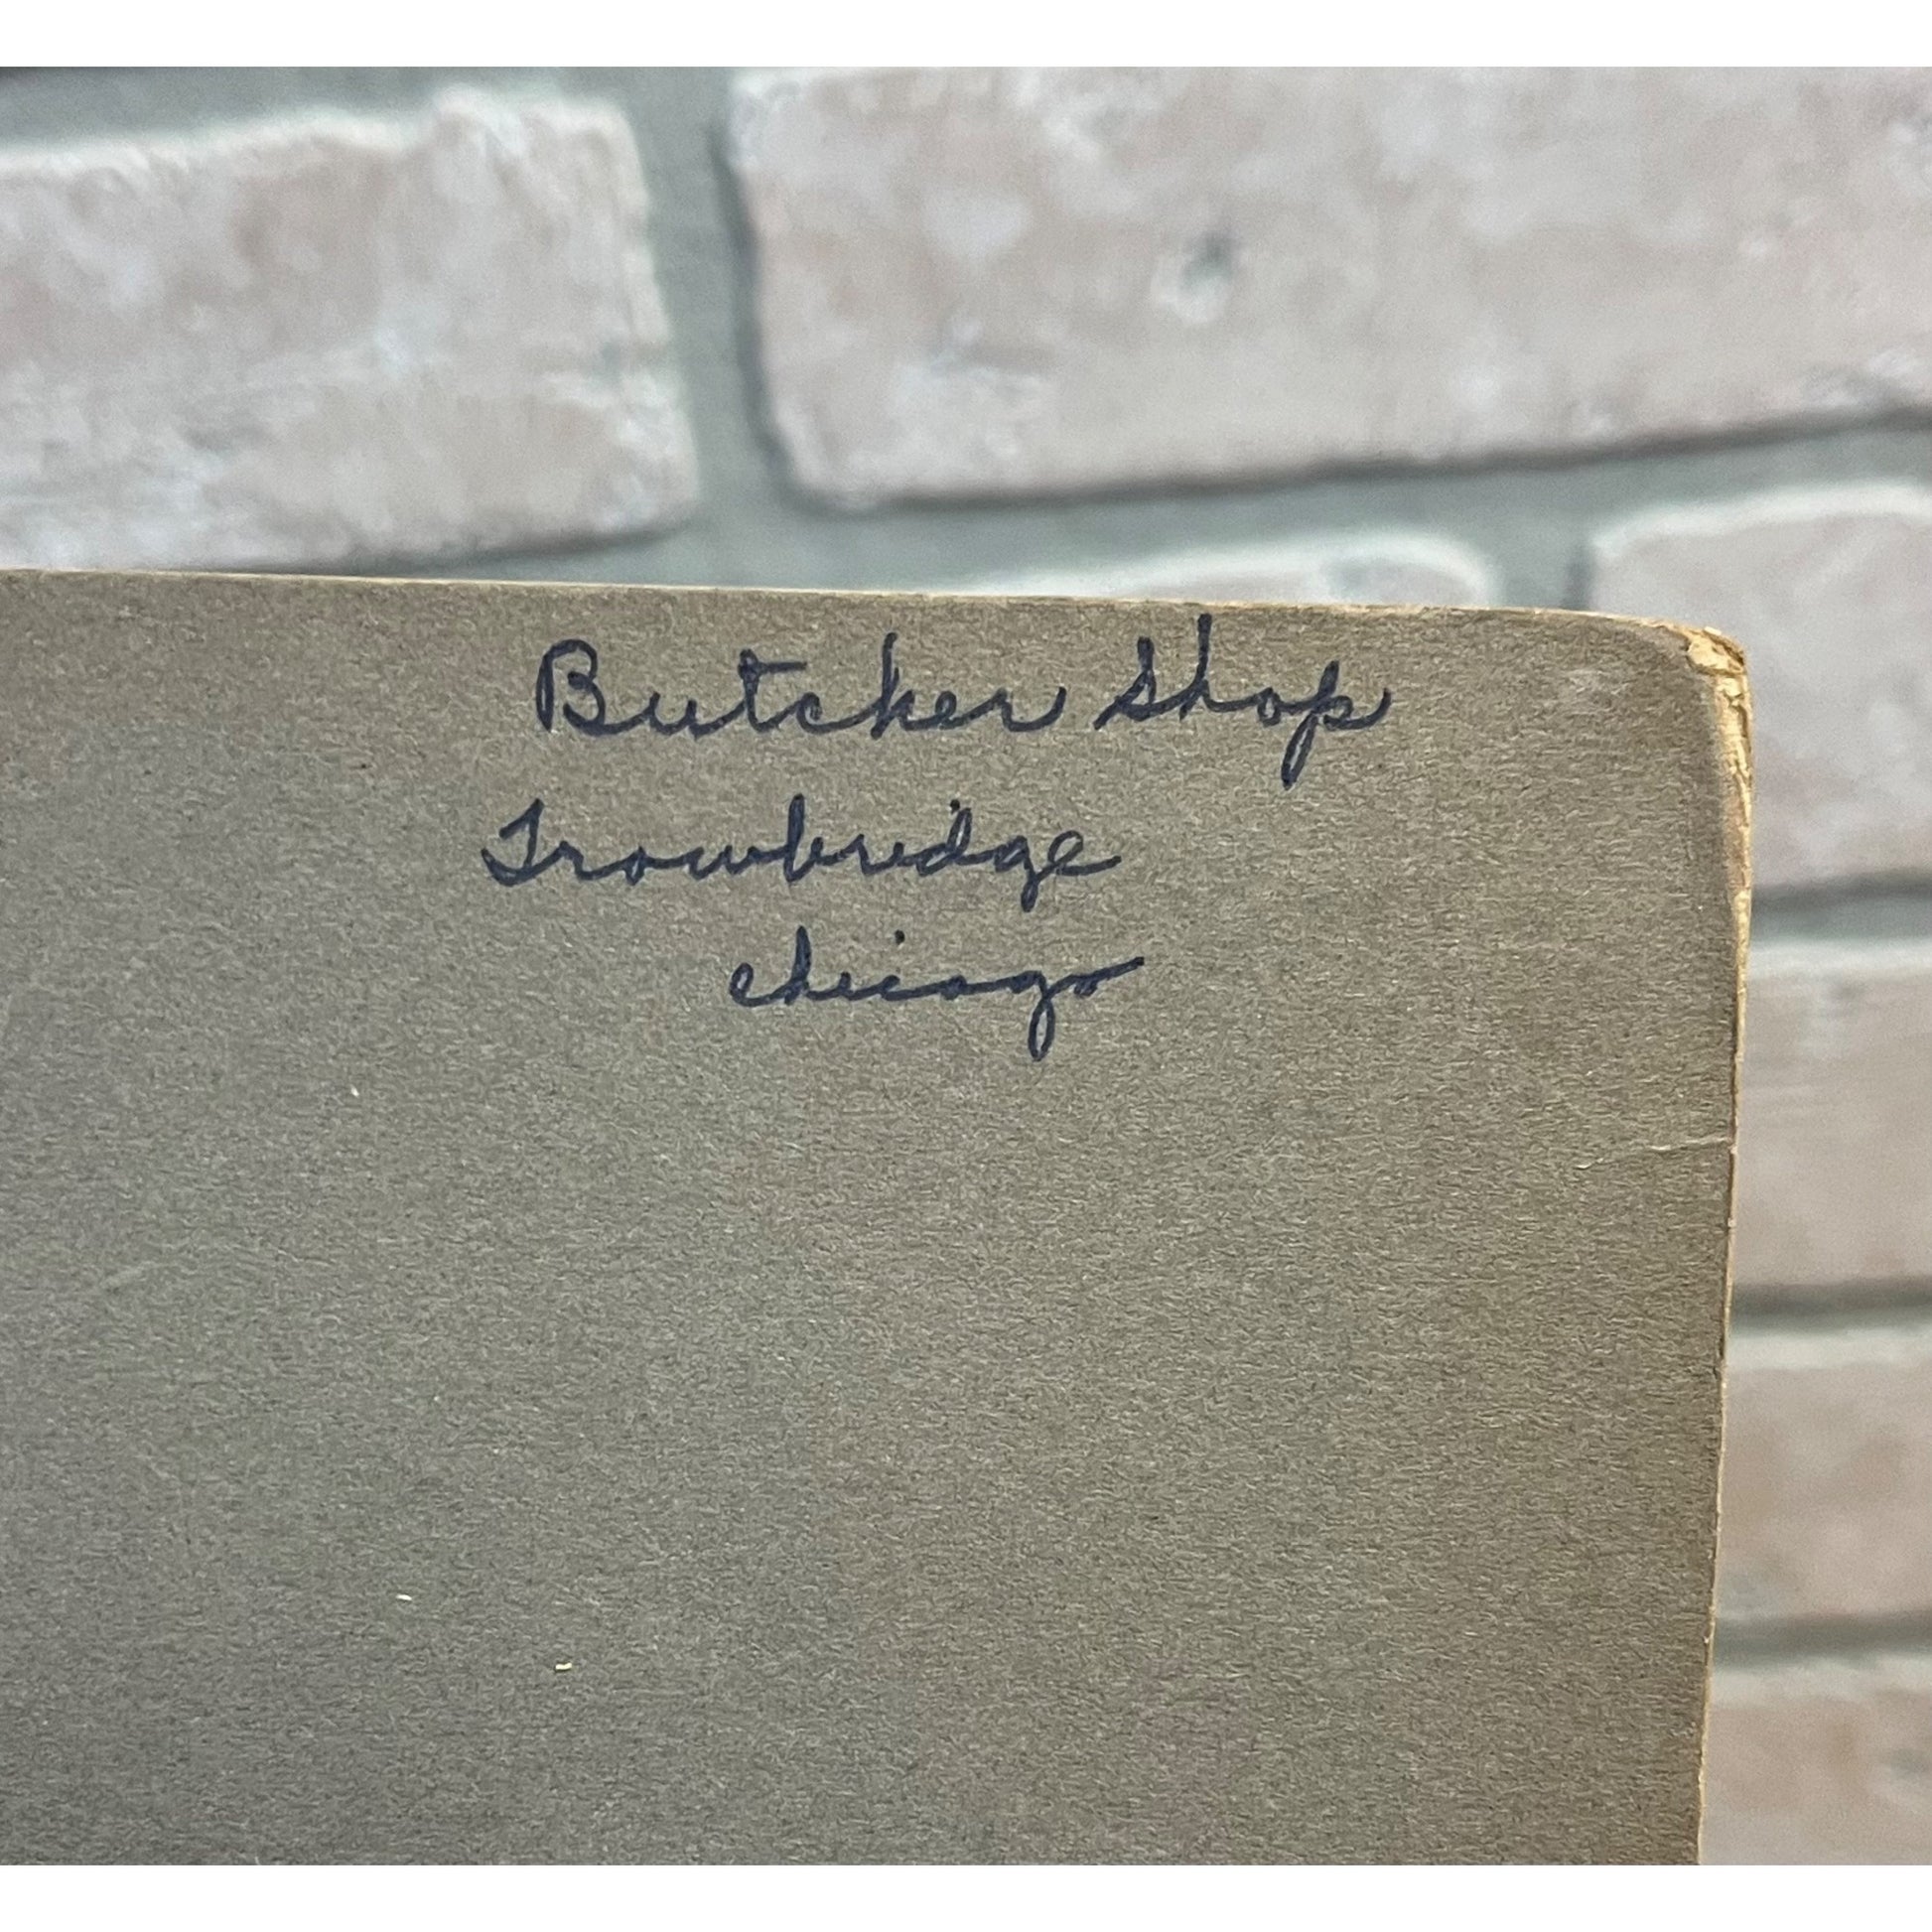 Butcher Shop
Trowbridge
Chicago